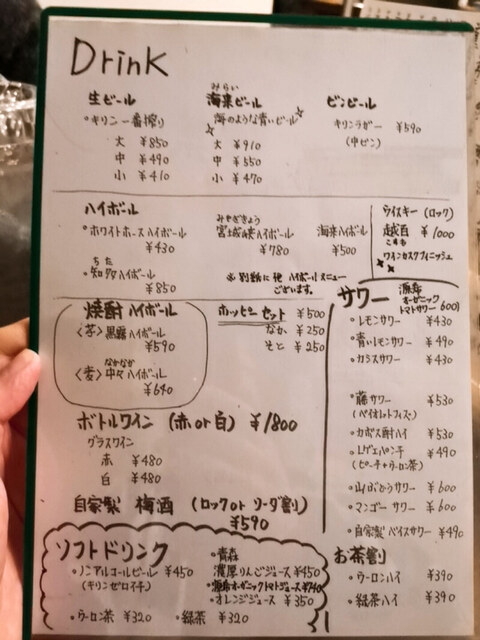 Drink
生ビール
・キリン一番搾り
大 ¥850
中 ¥490
小 ¥410
みらい
海来ビール
海のような青いビール
大 ¥910
中 ¥550
小 ¥470
ビンビール
キリンラガー ¥590
(中ビン)
ハイボール
・ホワイトホースハイボール
¥430
ちた
・知多ハイボール
¥850
みやぎきょう
宮城峡ハイボール
¥780
海来ハイボール
¥500
※別断に他 ハイボールメニュー
ございます。
ウイスキー(ロック)
越百 ¥1000
こすも
ワインカスクフィニッシュ
焼酎ハイボール
〈芋〉黒霧ハイボール
¥590
なかなか
〈麦〉中々ハイボール
¥640
ホッピーセット ¥500
なか ¥250
そと ¥250
サワー
オーガニック
トマトサワー 600
・レモンサワー ¥430
・青いレモンサワー ¥490
・カシスサワー ¥430
・藤サワー ¥530
(バイオレットフィズ)
・カボス酎ハイ ¥530
・レゲエパンチ ¥490
(ピーチ+ウーロン茶)
・山ぶどうサワー ¥600
・マンゴーサワー ¥600
・自家製バイスサワー ¥490
ボトルワイン (赤or白) ¥1800
グラスワイン
赤 ¥480
白 ¥480
自家製 梅酒 (ロックor ソーダ割)
¥590
ソフトドリンク
・ノンアルコールビール ¥450
(キリンゼロイチ)
・ウーロン茶 ¥320
・青森
濃厚りんごジュース ¥450
オーガニックトマトジュース
・オレンジジュース ¥350
・緑茶 ¥320
お茶割
・ウーロンハイ ¥390
・緑茶ハイ ¥390